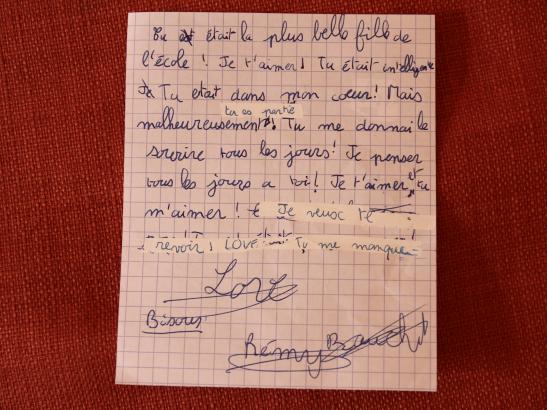 Tu était la plus belle fille de
l'école ! Je t'aimer ! Tu était intelligente
Tu etait dans mon cœur ! Mais
tu es partie
malheureusement ! Tu me donnai le
sourire tous les jours ! Je penser
tous les jours a toi ! Je t'aimer et tu
m'aimer ! Je veux te
revoir ! LOVE Tu me manque
Love
Bisous
Rémy